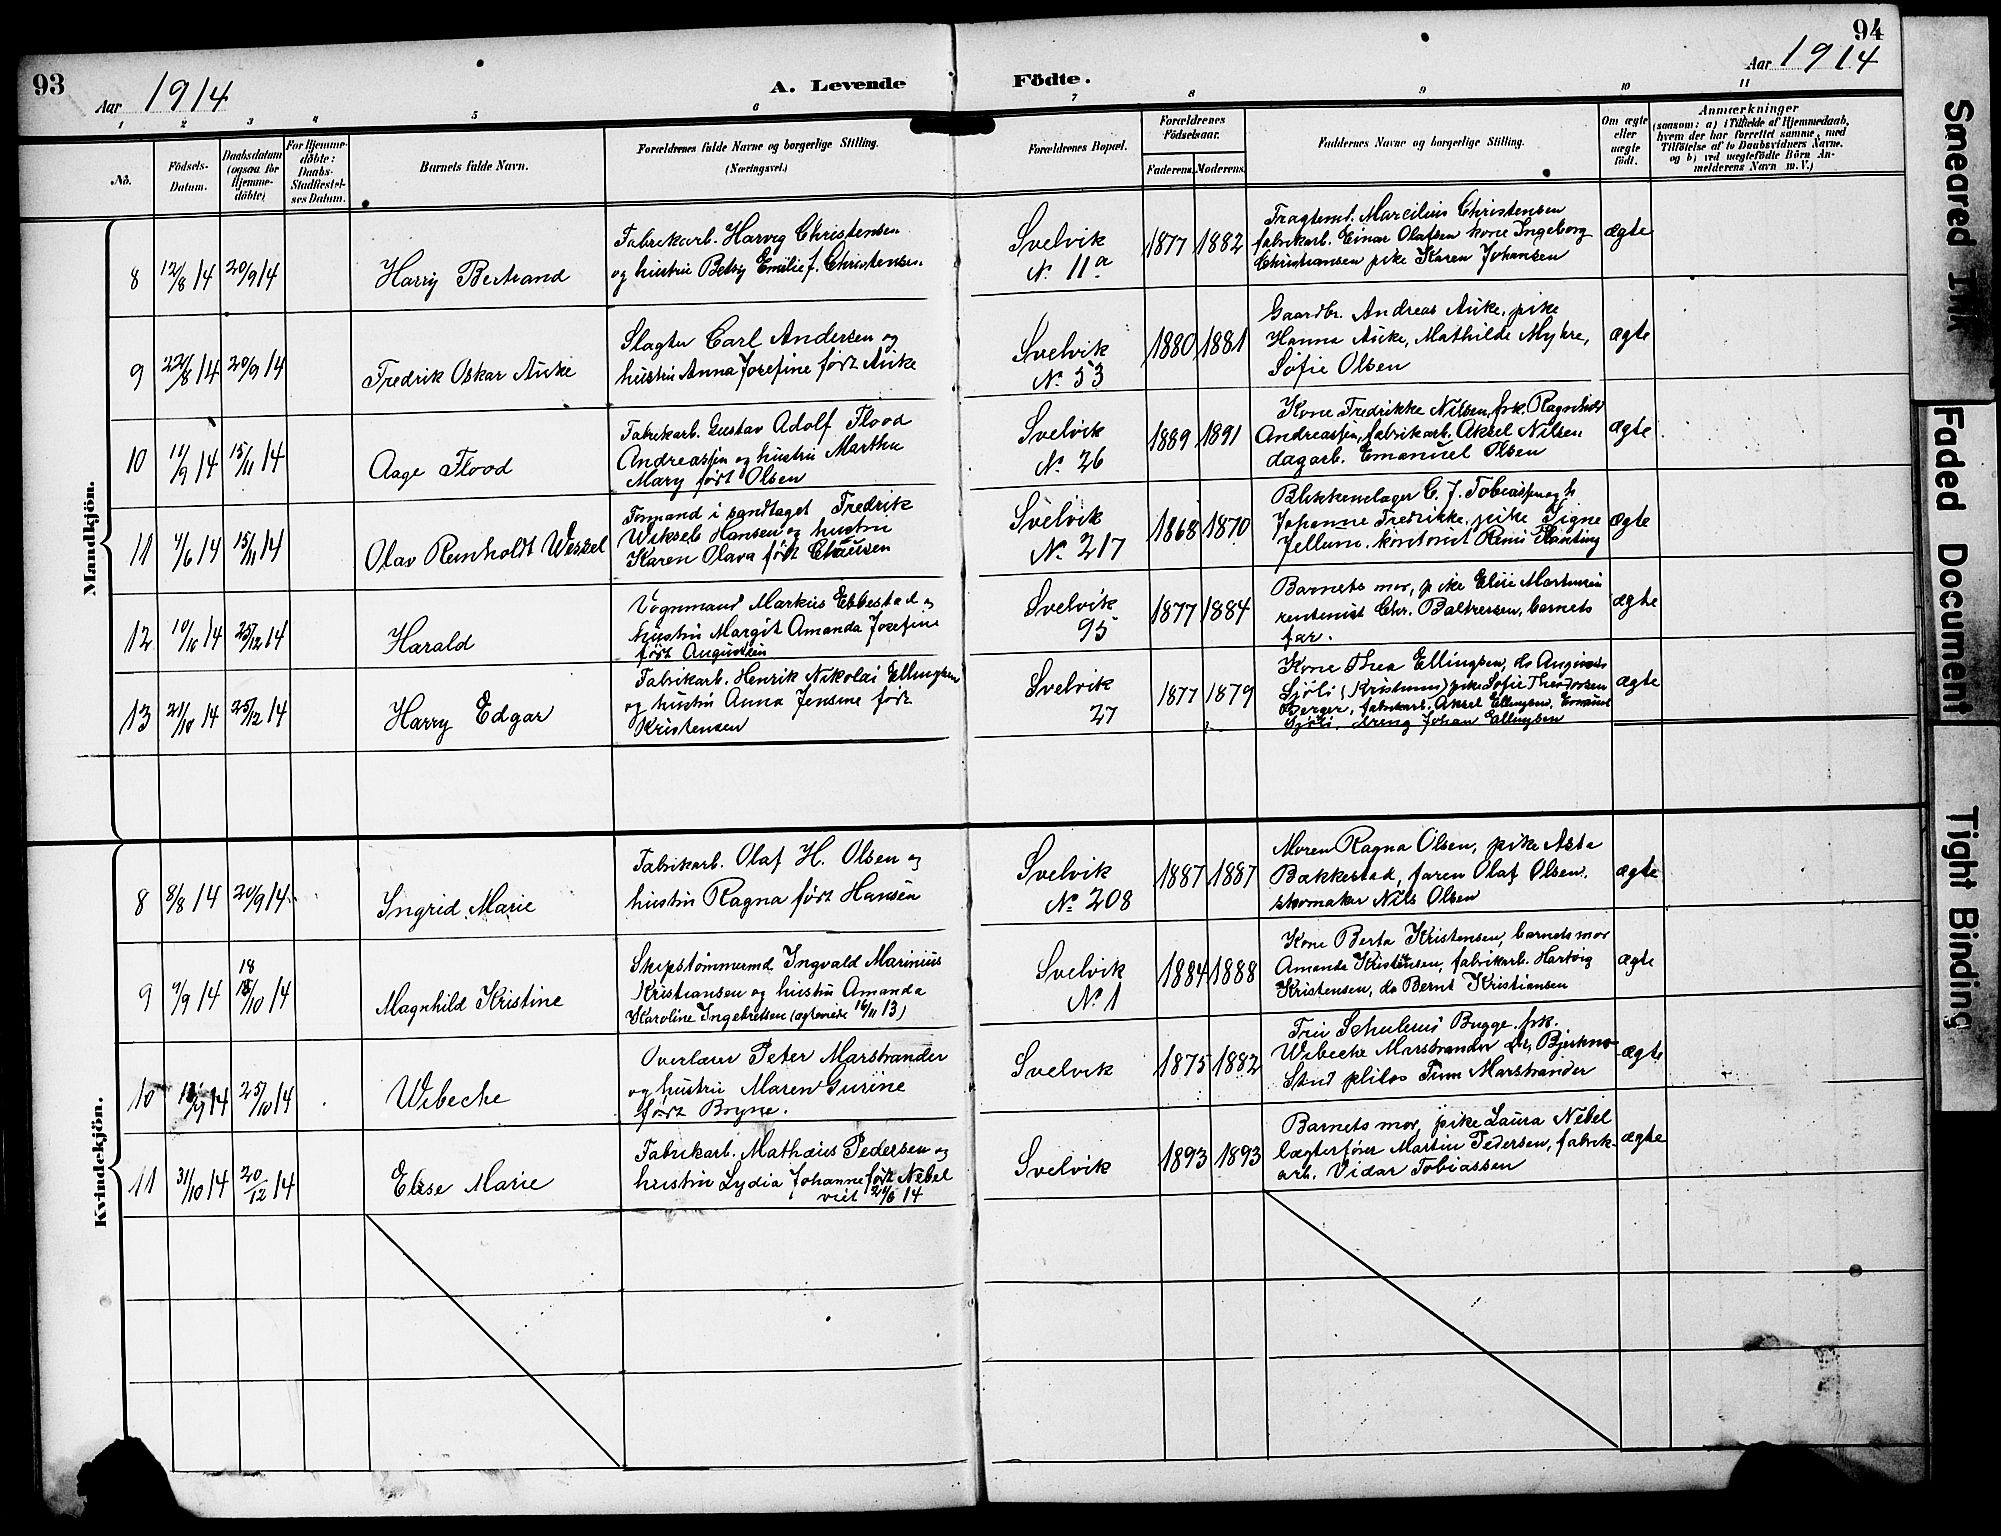 93
Aar 1914
A. Levende Födte.
94
Aar 1914
1 2 3 4 5 6 7 8 9 10 11
No.
Födsels-Datum.
Daabsdatum (ogsaa for Hjemme-döbte)
For Hjemme-döbte: Daabs-Stadfæstel-ses Datum.
Barnets fulde Navn.
Forældrenes fulde Navne og borgerlige Stilling. (Næringsvei.)
Forældrenes Bopæl.
Forældrenes Födselsaar.
Faderens. Moderens.
Faddernes Navne og borgerlige Stilling.
Om ægte eller uægte født.
Anmærkninger
(saasom: a) i Tilfælde af Hjemmedaab, hvem der har forrettet samme, med Tilföielse af to Daabsvidners Navne. og b) ved uægtefödte Börn An-melderens Navn m. V.)
Mandkjön.
8 12/8 14 20/9 14 Harry Bertrand
Fabrikarb. Harvig Christensen
og hustru Betsy Emilie f. Christensen.
Svelvik
No 11a
1877 1882
Fragtemd. Marcilius Christensen
fabrikarb. Einar Olafsen kone Ingeborg
Christiansen pike Karen Johansen
ægte
9 22/8 14 20/9 14 Fredrik Oskar Auke
Slagter Carl Andersen og
hustru Anna Josefine født Auke
Svelvik
No 53
1880 1881
Gaardbr. Andreas Auke, pike
Hanna Auke, Mathilde Myhre,
Sofie Olsen
ægte
10 14 15/11 14 Aage Flood
Fabrikarb. Gustav Adolf Flood
Andreassen og hustru Martha
Mary født Olsen
Svelvik
No 26
1889 1891
Kone Fredrikke Nilsen, frk. Ragnhild
Andreassen, fabrikarb. Aksel Nilsen
dagarb. Emanuel Olsen
ægte
11 14 15/11 14 Olav Reinholdt Wessel
Formand i sandtaget Fredrik
Wiksels Hansen og hustru
Karen Olava født Clausen
Svelvik
No 217
1868 1870
Blikkenslager C. J. Tobiassen og h
Johanne Fredrikke. pike Signe
Jellum. kontorist
ægte
12 14 25/12 14 Harald
Vognmand Markus Ebbestad og
hustru Margit Amanda Josefine
født Augustsen
Svelvik
95
1877 1884
Barnets mor, pike Elise Martinsen
rentenist Chr. Baltzersen, barnets
far.
ægte
13 21/10 14 25/12 14 Harry Edgar
Fabrikarb. Henrik Nikolai Ellingsen
og hustru Anna Jensine født
Kristensen
Svelvik
27
1877 1879
Kone Thea Ellingsen, do
Sjöli pike Sofie
Berger, fabrikarb. Aksel Ellingsen,
Sjöli. Johan Ellingsen
ægte
Kvindekjön.
8 8/8 14 20/9 14 Ingrid Marie
Fabrikarb. Olaf H. Olsen og
hustru Ragna født Hansen
Svelvik
No 208
1887 1887
Moren Ragna Olsen, pike Asta
Bakkestad, faren Olaf Olsen.
skomaker Nils Olsen
ægte
9 14 18/10 14 Magnhild Kristine
Skipstømmermd Ingvald Marinius
Kristiansen og hustru Amanda
Karoline Ingebretsen (egteviede 16/11 13)
Svelvik
No 1
1884 1888
Kone Berta Kristensen, barnets mor
Amanda Kristensen, fabrikarb. Hartvig
Kristensen, do Bernt Kristiansen
ægte
10 14 25/10 14 Wibeche
Overlærer Peter Marstrander
og hustru Maren Gurine
født Bryne.
Svelvik
1875 1882
Frui Schulerud Bugge. frk.
Wibeche Marstrander
Stud philos Marstrander
ægte
11 31/10 14 20/12 14 Elise Marie
Fabrikarb. Mathæus Pedersen og
hustru Lydia Johanne født Nebel
viet 14
Svelvik
1893 1893
Barnets mor, pike Laura Nebel
lægterfører Martin Pedersen, fabrik-
arb. Vidar Tobiassen
ægte
Smeared Ink
Faded Document
Tight Binding